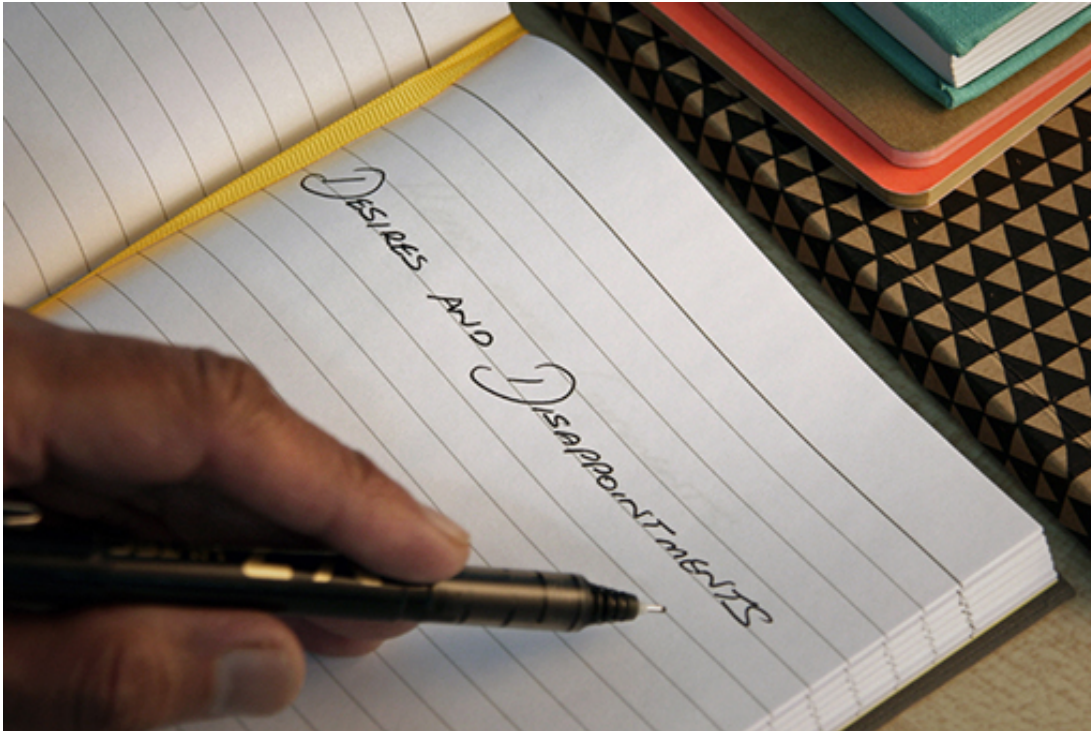 Desires and Disappointments